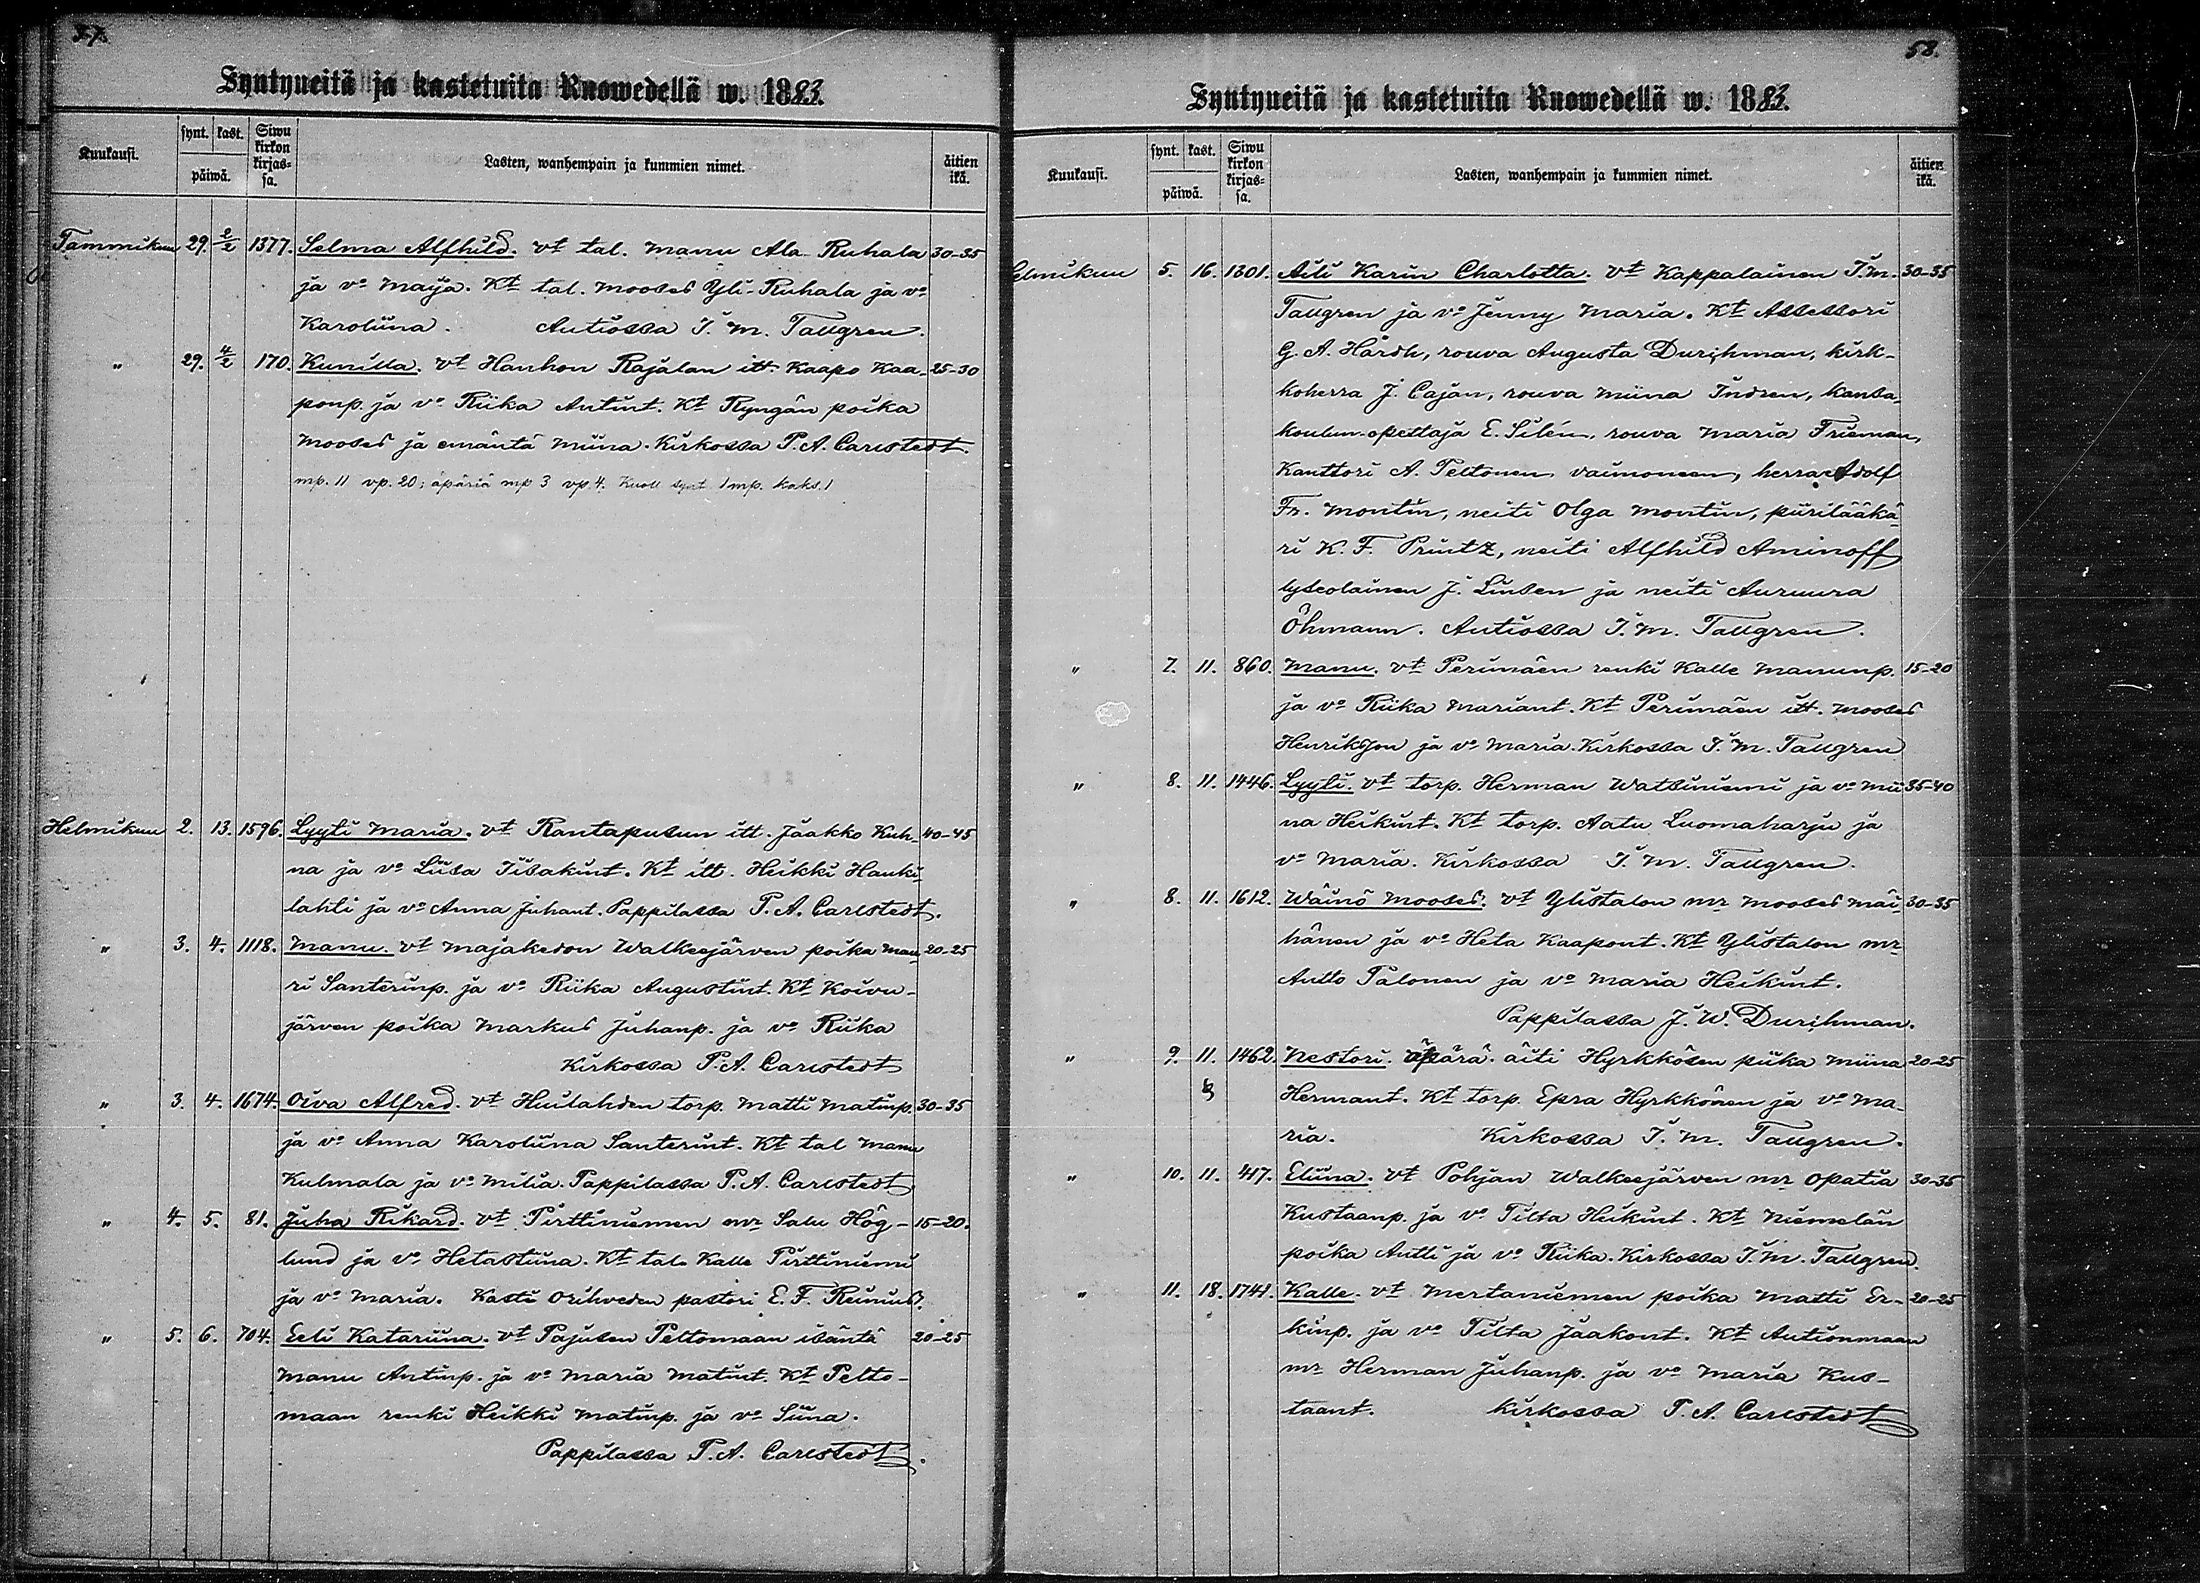 57.
Syntyneitä ja kastetuita Ruowedellä w. 1883.
Kuukausi.
synt. kast.
päiwä.
Siwu kirkon kirjas= sa.
Lasten, wanhempain ja kummien nimet.
äitien ikä.
Tammikuu 29. 2/2 1377. Selma Alfhild. vt tal. Manu Ala-Ruhala 30-35
ja vo Maija. Kt tal. Mooses Yli-Ruhala ja vo
Karoliina. Autiossa I. M. Tallgren.
" 29. 4/2 170. Kunilla. vt Hanhon Rajalan itt. Kaapo Kaa- 25-30
ponp. ja vo Riika Antint. Kt Ryngän poika
Mooses ja emäntä Miina. Kirkossa P. A. Carlstedt.
mp. 11 vp. 20; äpäriä mp 3 vp. 4. Kuoll synt. 1 mp. kaks. 1
Helmikuu 2. 13. 1596. Lyyti Maria. vt Rantapusun itt. Jaakko Kuh- 40-45
na ja vo Liisa Iisakint. Kt itt. Heikki Hanki-
lahti ja vo Anna Juhant. Pappilassa P. A. Carlstedt.
" 3. 4. 1118. Manu. vt Majakedon Walkeejärven poika Mau- 20-25
ri Santerinp. ja vo Riika Augustint. Kt Koivu-
järven poika Markus Juhanp. ja vo Riika
Kirkossa P. A. Carlstedt
" 3. 4. 1674. Oiva Alfred. vt Huilahden torp. Matti Matinp. 30-35
ja vo Anna Karoliina Santerint. Kt tal Manu
Kulmala ja vo Milia. Pappilassa P. A. Carlstedt
" 4. 5. 81. Juha Rikard. vt Pirttiniemen mr Salu Hög- 15-20.
lund ja vo Hetastiina. Kt tal. Kalle Pirttiniemi
ja vo Maria. Kasti Orihveden pastori E. F. Reinius.
" 5. 6. 704. Eeli Katariina. vt Pajusen Peltomaan isäntä 20-25
Manu Antinp. ja vo Maria Matint. Kt Pelto-
maan renki Heikki Matinp. ja vo Siina.
Pappilassa P. A. Carlstedt.
58.
Syntyneitä ja kastetuita Ruowedellä w. 1883.
Kuukausi.
synt. kast.
päiwä.
Siwu kirkon kirjas= sa.
Lasten, wanhempain ja kummien nimet.
äitien ikä.
elmikuu 5. 16. 1301. Aili Karin Charlotta. vt Kappalainen I. M. 30-35
Tallgren ja vo Jenny Maria. Kt Assessori
G. A. Hårdh, rouva Augusta Durchman, kirk-
koherra J. Cajan, rouva Miina Indren, kansa-
koulun-opettaja E. Silén, rouva Maria Frieman,
Kanttori A. Peltonen vaimoneen, herra Adolf
Fr. Montin, neiti Olga Montin, piirilääkä-
ri K. F. Printz, neiti Alfhild Aminoff
lyseolainen J. Linsen ja neiti Auruura
Öhmann. Autiossa I. M. Tallgren.
" 7. 11. 860. Manu. vt Perimäen renki Kalle Manunp. 15-20
ja vo Riika Mariant. Kt Perimäen itt. Mooses
Henriksson ja vo Maria. Kirkossa I. M. Tallgren
" 8. 11. 1446. Lyyli. vt torp. Herman Watsiniemi ja vo Mii 35-40
na Heikint. Kt torp. Aatu Luomaharju ja
vo Maria. Kirkossa I. M. Tallgren.
" 8. 11. 1612. Wäinö Mooses. vt Ylistalon mr Mooses Mäi- 30-35
hänen ja vo Heta Kaapont. Kt Ylistalon mr
Antto Palonen ja vo Maria Heikint.
Pappilassa J. W. Durchman.
" 9. 11. 1462. Nestori. äpärä. äiti Hyrkkösen piika Miina 20-25
Hermant. Kt torp. Epra Hyrkkönen ja vo Ma-
ria. Kirkossa I. M. Tallgren.
" 10. 11. 417. Eliina. vt Pohjan Walkeejärven mr Opatia 30-35
Kustaanp. ja vo Tilta Heikint. Kt Niemelän
poika Antti ja vo Riika. Kirkossa I. M. Tallgren.
" 11. 18. 1741. Kalle. vt Mertaniemen poika Matti Er- 20-25
kinp. ja vo Tilta Jaakont. Kt Autionmaan
mr Herman Juhanp. ja vo Maria Kus-
taant. Kirkossa P. A. Carlstedt